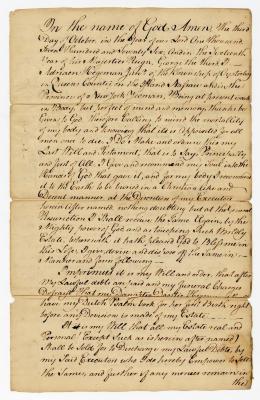 In the name of God Amen The third
Day of October in the Year of our Lord One thousand
Seven Hundred and Seventy Six, and in the Sixteenth
Year of his Majesties Reign, George the third I
Adriaen Hegeman of the Township of Oysterbay
in Queens County in the Island Nassau within the
Province of New York Yeoman, Being at present weak
in Body, but perfect of mind and memory thanks be
Given to God Therefore Calling to mind the mortality
of my body and knowing that it is Appointed for all
men once to die, I Do Make and ordain this my
Last Will and Testament, that is to Say Principally
and first of all, I Give and recommend my Soul into the
Hands of God that gave it, and for my body I recommend
it to the Earth to be buried in a Christian like and
Decent manner at the Discretion of my Executors
herein after named, nothing doubting but at the General
Resurrection I Shall receive the Same Again by the
Mighty power of God and as touching Such Worldly
Estate wherewith it hath pleased God to Bless me in
this Life I give devise and dispose of the Same in
Manner and form following
Imprimus it is my Will and order that after
My Lawful debts are paid and my funeral Charges
have my Dutch Psalm book for her first Birth right
before any Division is made of my Estate
It is my Will that all my Estate real and
Personal Except Such as is herein after named
Shall be Sold for to Discharge my Lawful Debts, by
my Said Executors who I do hereby Empower to Sell
the Same, and further if any monies remain in
this